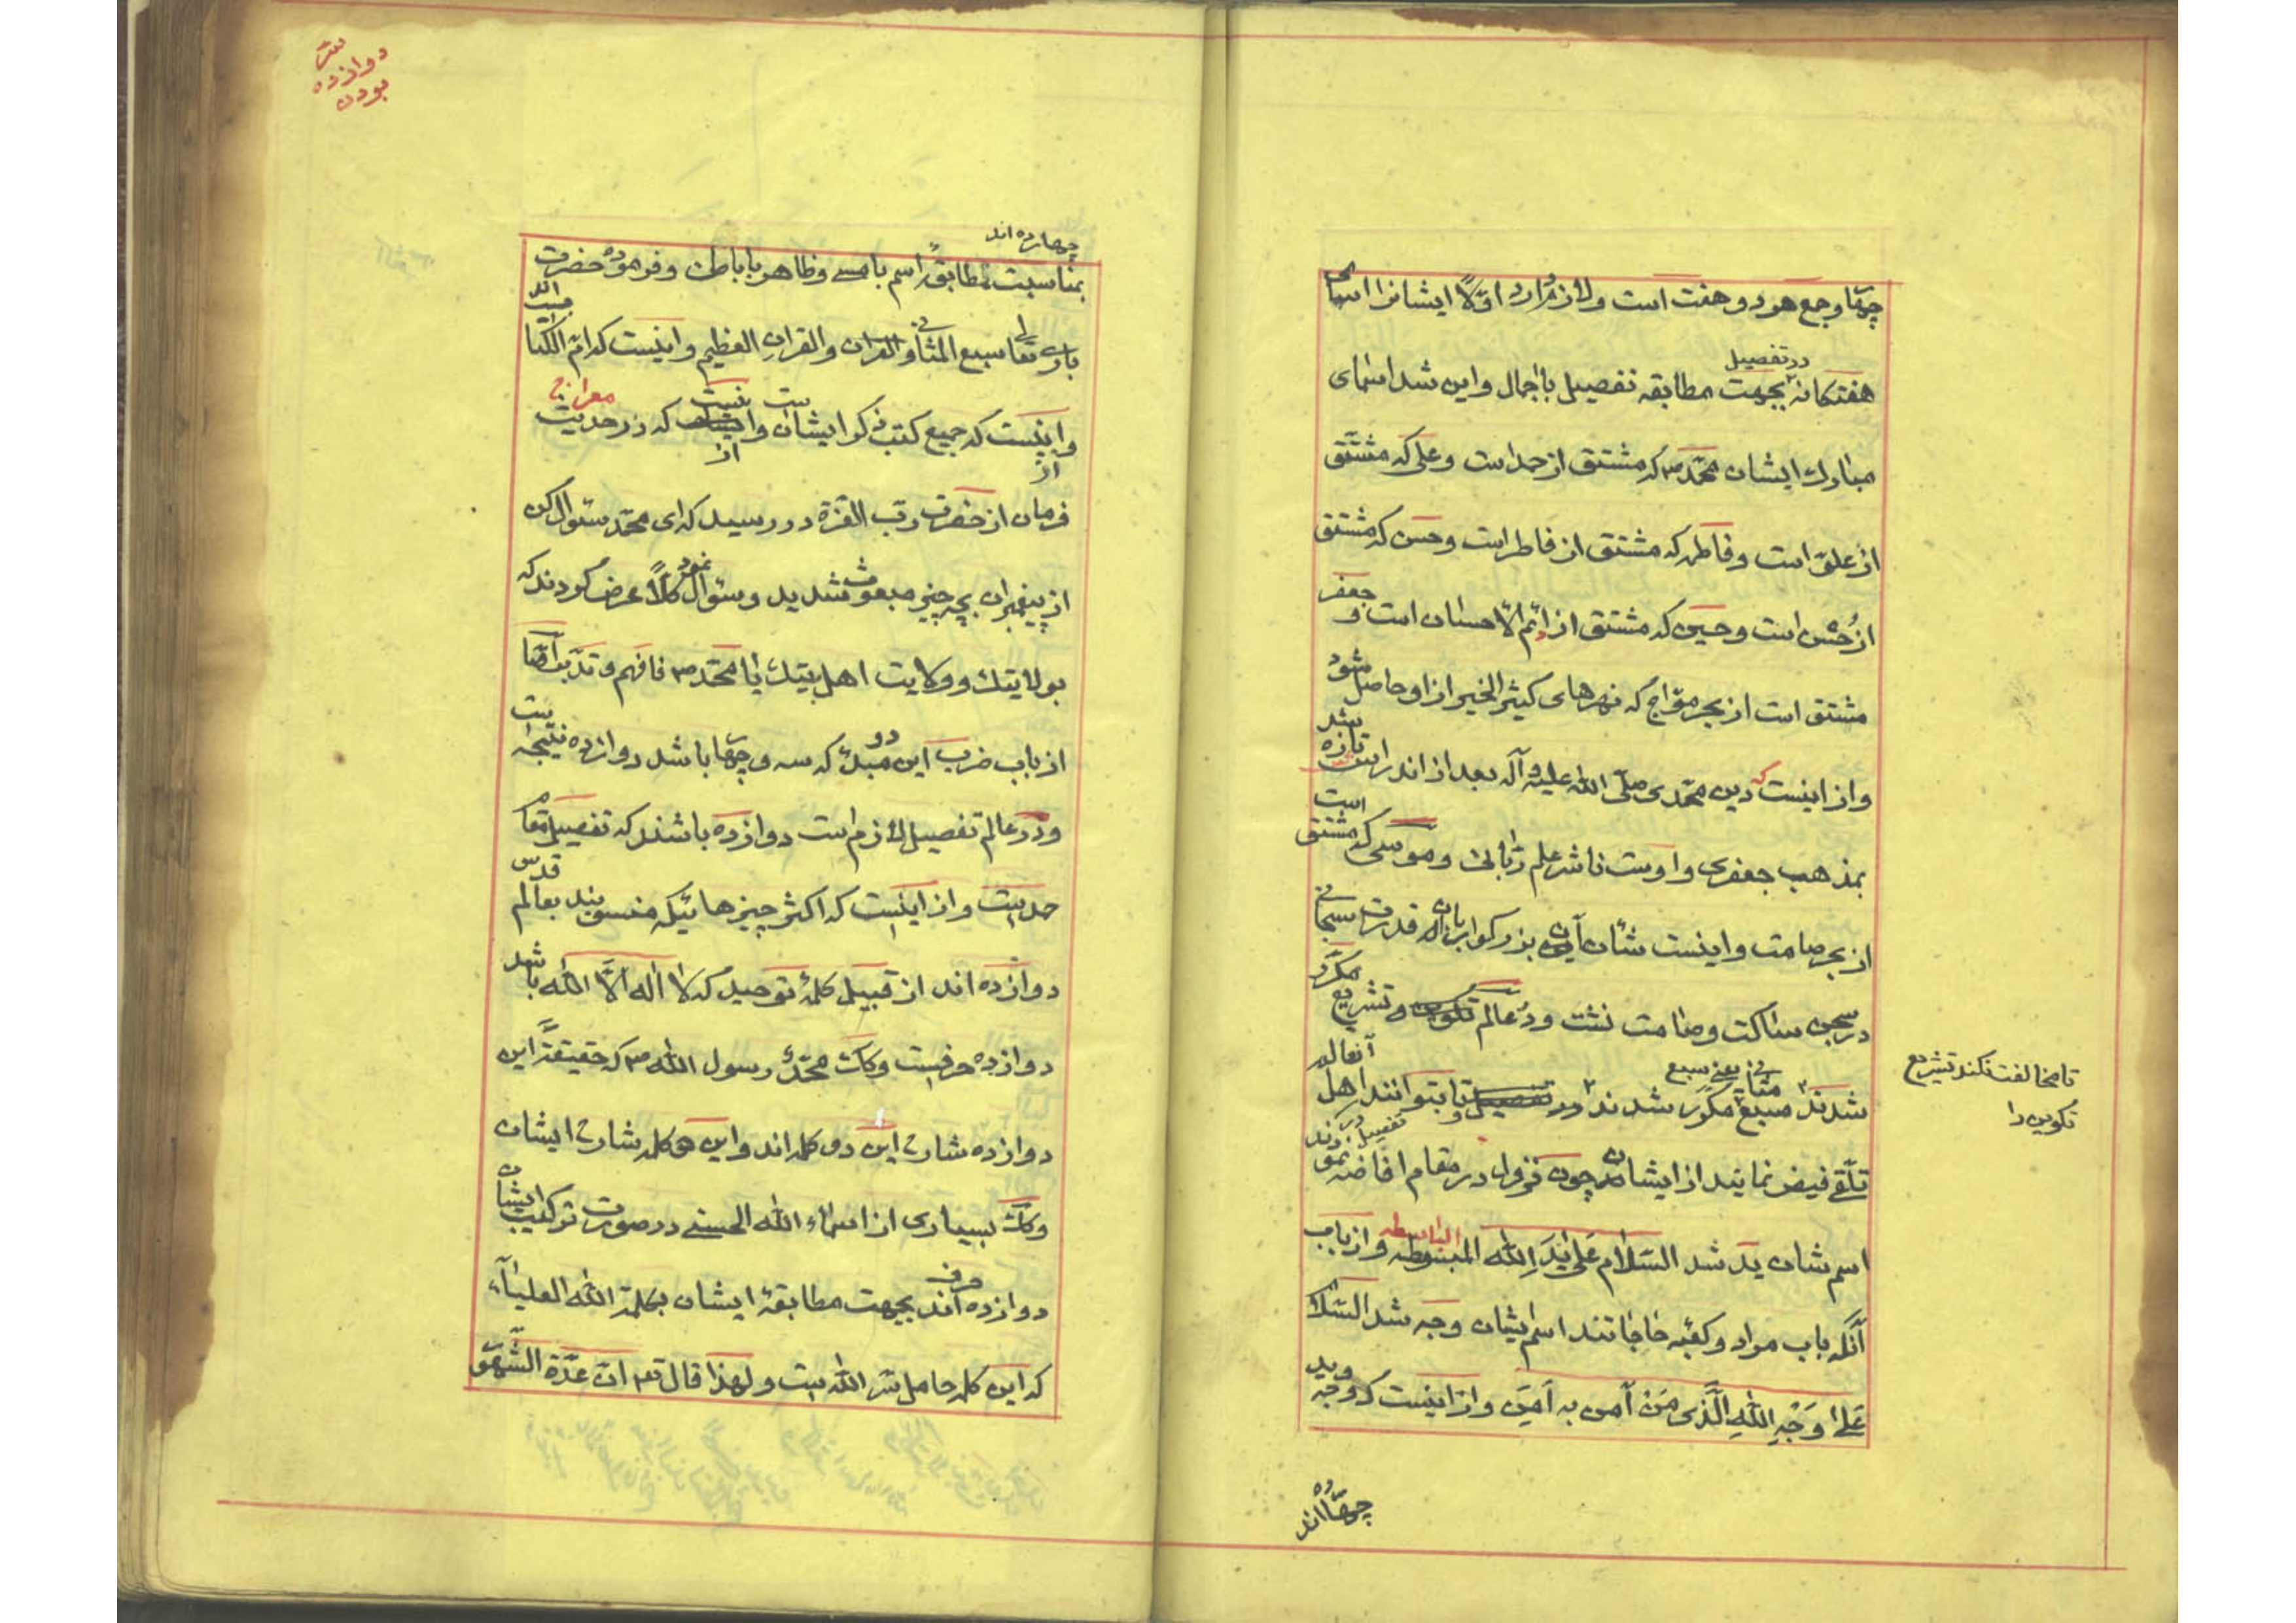 چهار و جمع هر دو هفت است و لازم دارد اوّلاً ایشانرا اسمای
هفتکانه در تفصیل بجهت مطابقه تفصیل با اجمال و این شد اسمای
مبارك ایشان محمّد ص که مشتق از حمد است و علی که مشتق
از علوّ است و فاطمه که مشتق از فاطر است و حسن که مشتق
از حُسْن است و حسین که مشتق از اسم الاحسان است و جعفر
مشتق است از بحر موّاج که نهرهای کثیر الخیر از او حاصل شود
و از اینست که دین محمّدی صلّی الله علیه و آله بعد از اندراس تازه شد
بمذهب جعفری و اوست ناشر علم ربّانی و موسی که مشتق است
از بحر صامت و اینست شأن آن بزرکوار قدرت سبحانی
در سجن ساکت و صامت نشت و در عالم و تشریع مکرّر
شدند سبع مثانی یعنی سبع مکرّر شدند تا بتوانند اهل آنعالم
تلقّی فیض نمایند از ایشان چون نزول در مقام افاضه نمودند
اسم شان ید شد السّلام عَلی یَدِ اللهِ المبسوطه الباسطه و از باب
آنکه باب مراد و کعبه حاجاتند اسم ایشان وجه شد السّلام
عَلی وَجْهِ اللهِ الَّذی مَنْ آمن به اَمِنَ و از اینست که وجه و ید
چهارده اند
تا مخالفت نکند تشریع
تکوین را
سرّ
دوازده
بودن
چهارده اند
بمناسبت تطابق اسم با مسمی و ظاهر با باطن و فرموده حضرت
باری تعالی سبع المثانی و القران العظیم و اینست که امّ الکتاب
و اینست که جمیع کتب ذکر ایشان است و از که در حدیث معراج
فرمان از حضرت ربّ العزة در رسید که ای محمّد سئوال کن
از پیغمبران بچه چیز مبعوث شدید و سئوال نمود کلّاً عرض کردند که
بولایتك و ولایت اهل بیتك یا محمّد ص فافهم و تدبّر امّا
از باب ضرب این دو مبدء که سه و چهار باشد دوازده نتیجه
و در عالم تفصیل لازم است دوازده باشند که تفصیل مقام
حدیست و از اینست که اکثر چیزهائیکه منسوبند بعالم قدس
دوازده اند از قبیل کلمهٔ توحید که لا اله الّا الله باشد
دوازده حرفست و کذلك محمّد رسول الله ص که حقیقةً این
دوازده شارح این دو کلمه اند و این دو کلمه شارح ایشان
و کذلك بسیاری از اسماء الله الحسنی در صورت ترکیب ایشان
دوازده حرف اند بجهت مطابقهٔ ایشان بکلمة الله العلیاء
که این کلمه حامل سرّ الله است و لهذا قال تعم انّ عدّة الشّهور